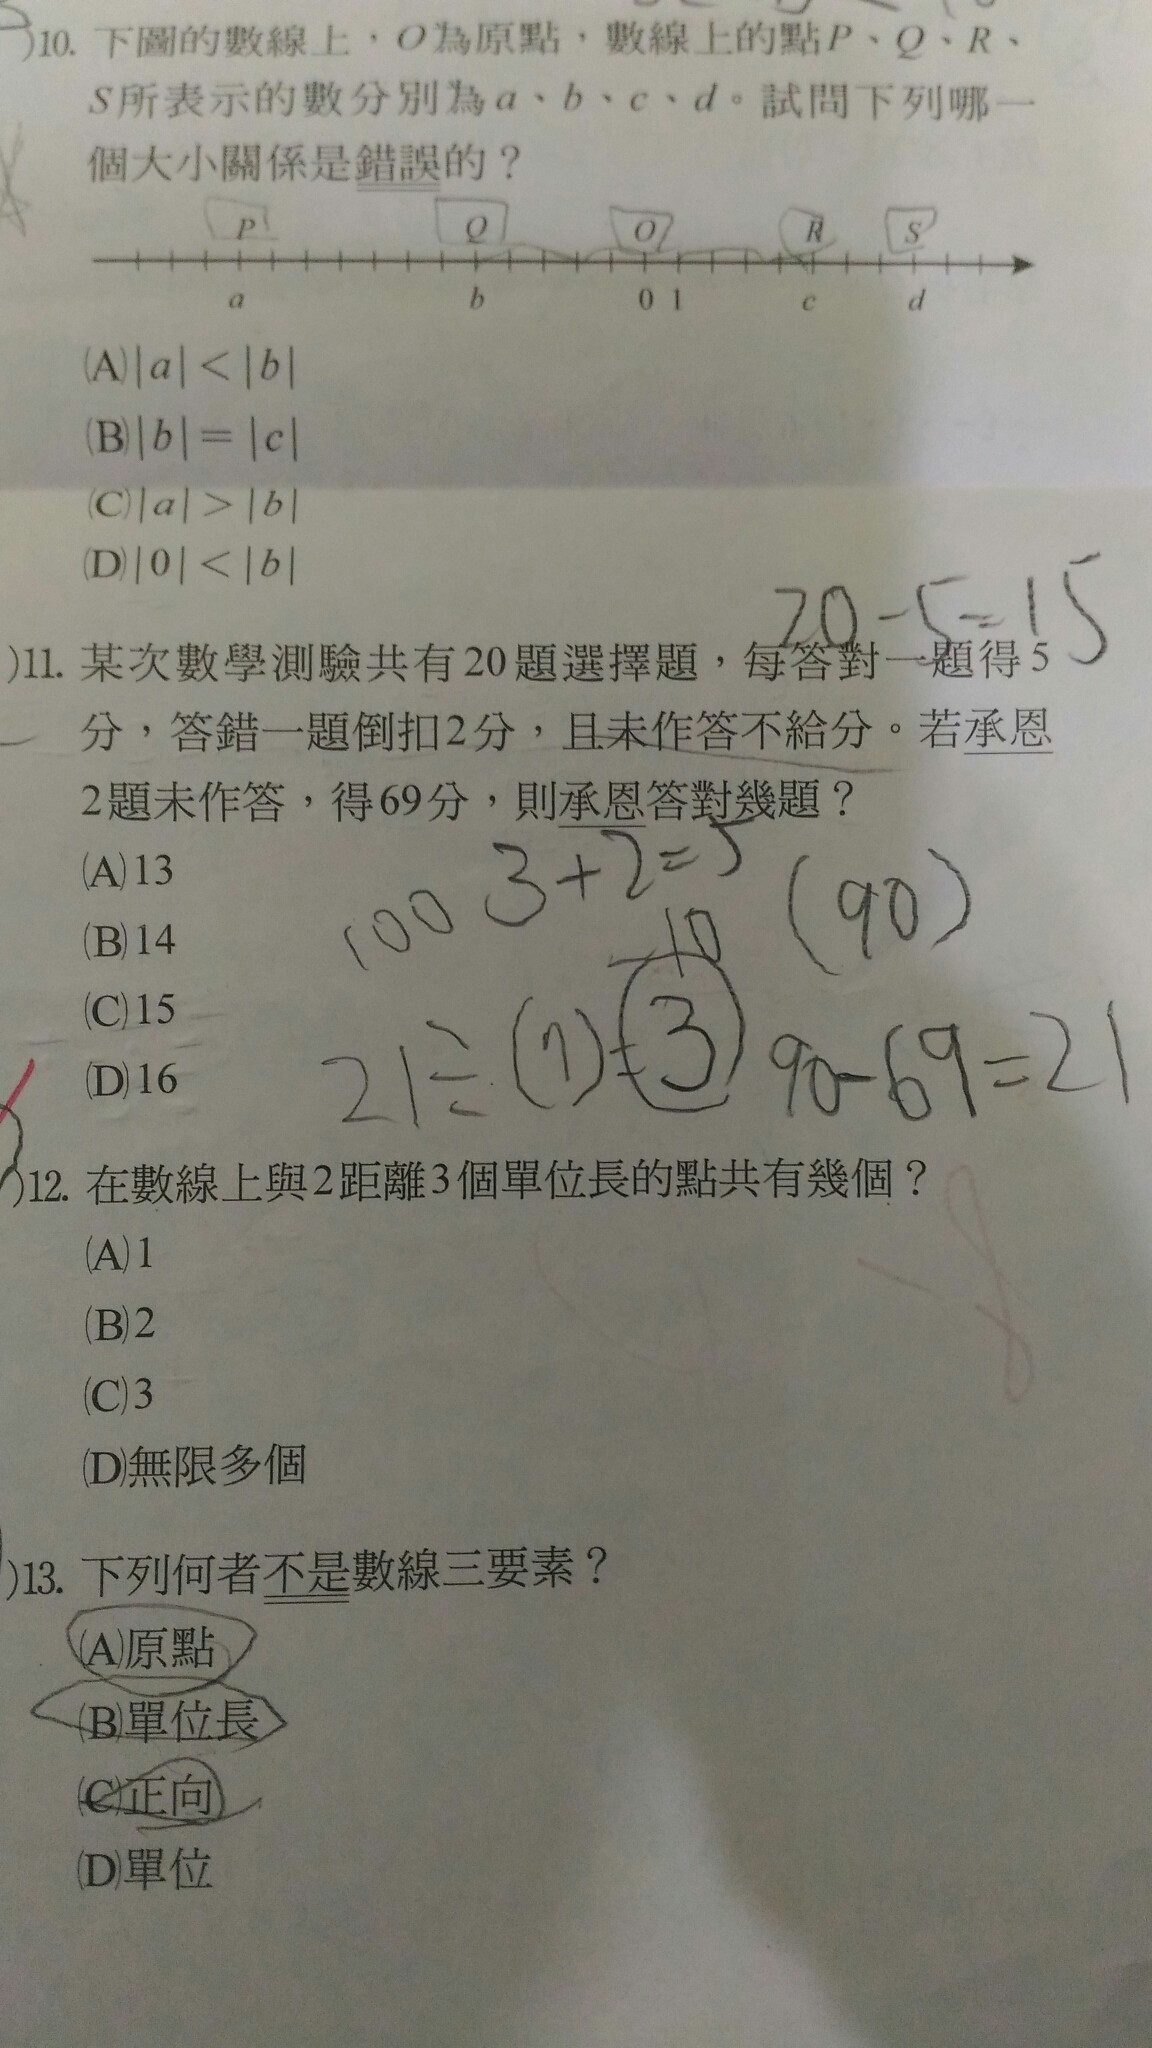 )10. 下圖的數線上，O為原點，數線上的點P、Q、R、
S所表示的數分別為a、b、c、d。試問下列哪一
個大小關係是錯誤的？
P Q O R S
a b 0 1 c d
(A)|a|<|b|
(B)|b|=|c|
(C)|a|>|b|
(D)|0|<|b|
20-5=15
)11. 某次數學測驗共有20題選擇題，每答對一題得5
分，答錯一題倒扣2分，且未作答不給分。若承恩
2題未作答，得69分，則承恩答對幾題？
(A)13
3+2=5
(B)14
100
-10
(90)
(C)15
21÷(7)=3
90-69=21
(D)16
)12. 在數線上與2距離3個單位長的點共有幾個？
(A)1
(B)2
(C)3
(D)無限多個
-8
)13. 下列何者不是數線三要素？
(A)原點
(B)單位長
(C)正向
(D)單位